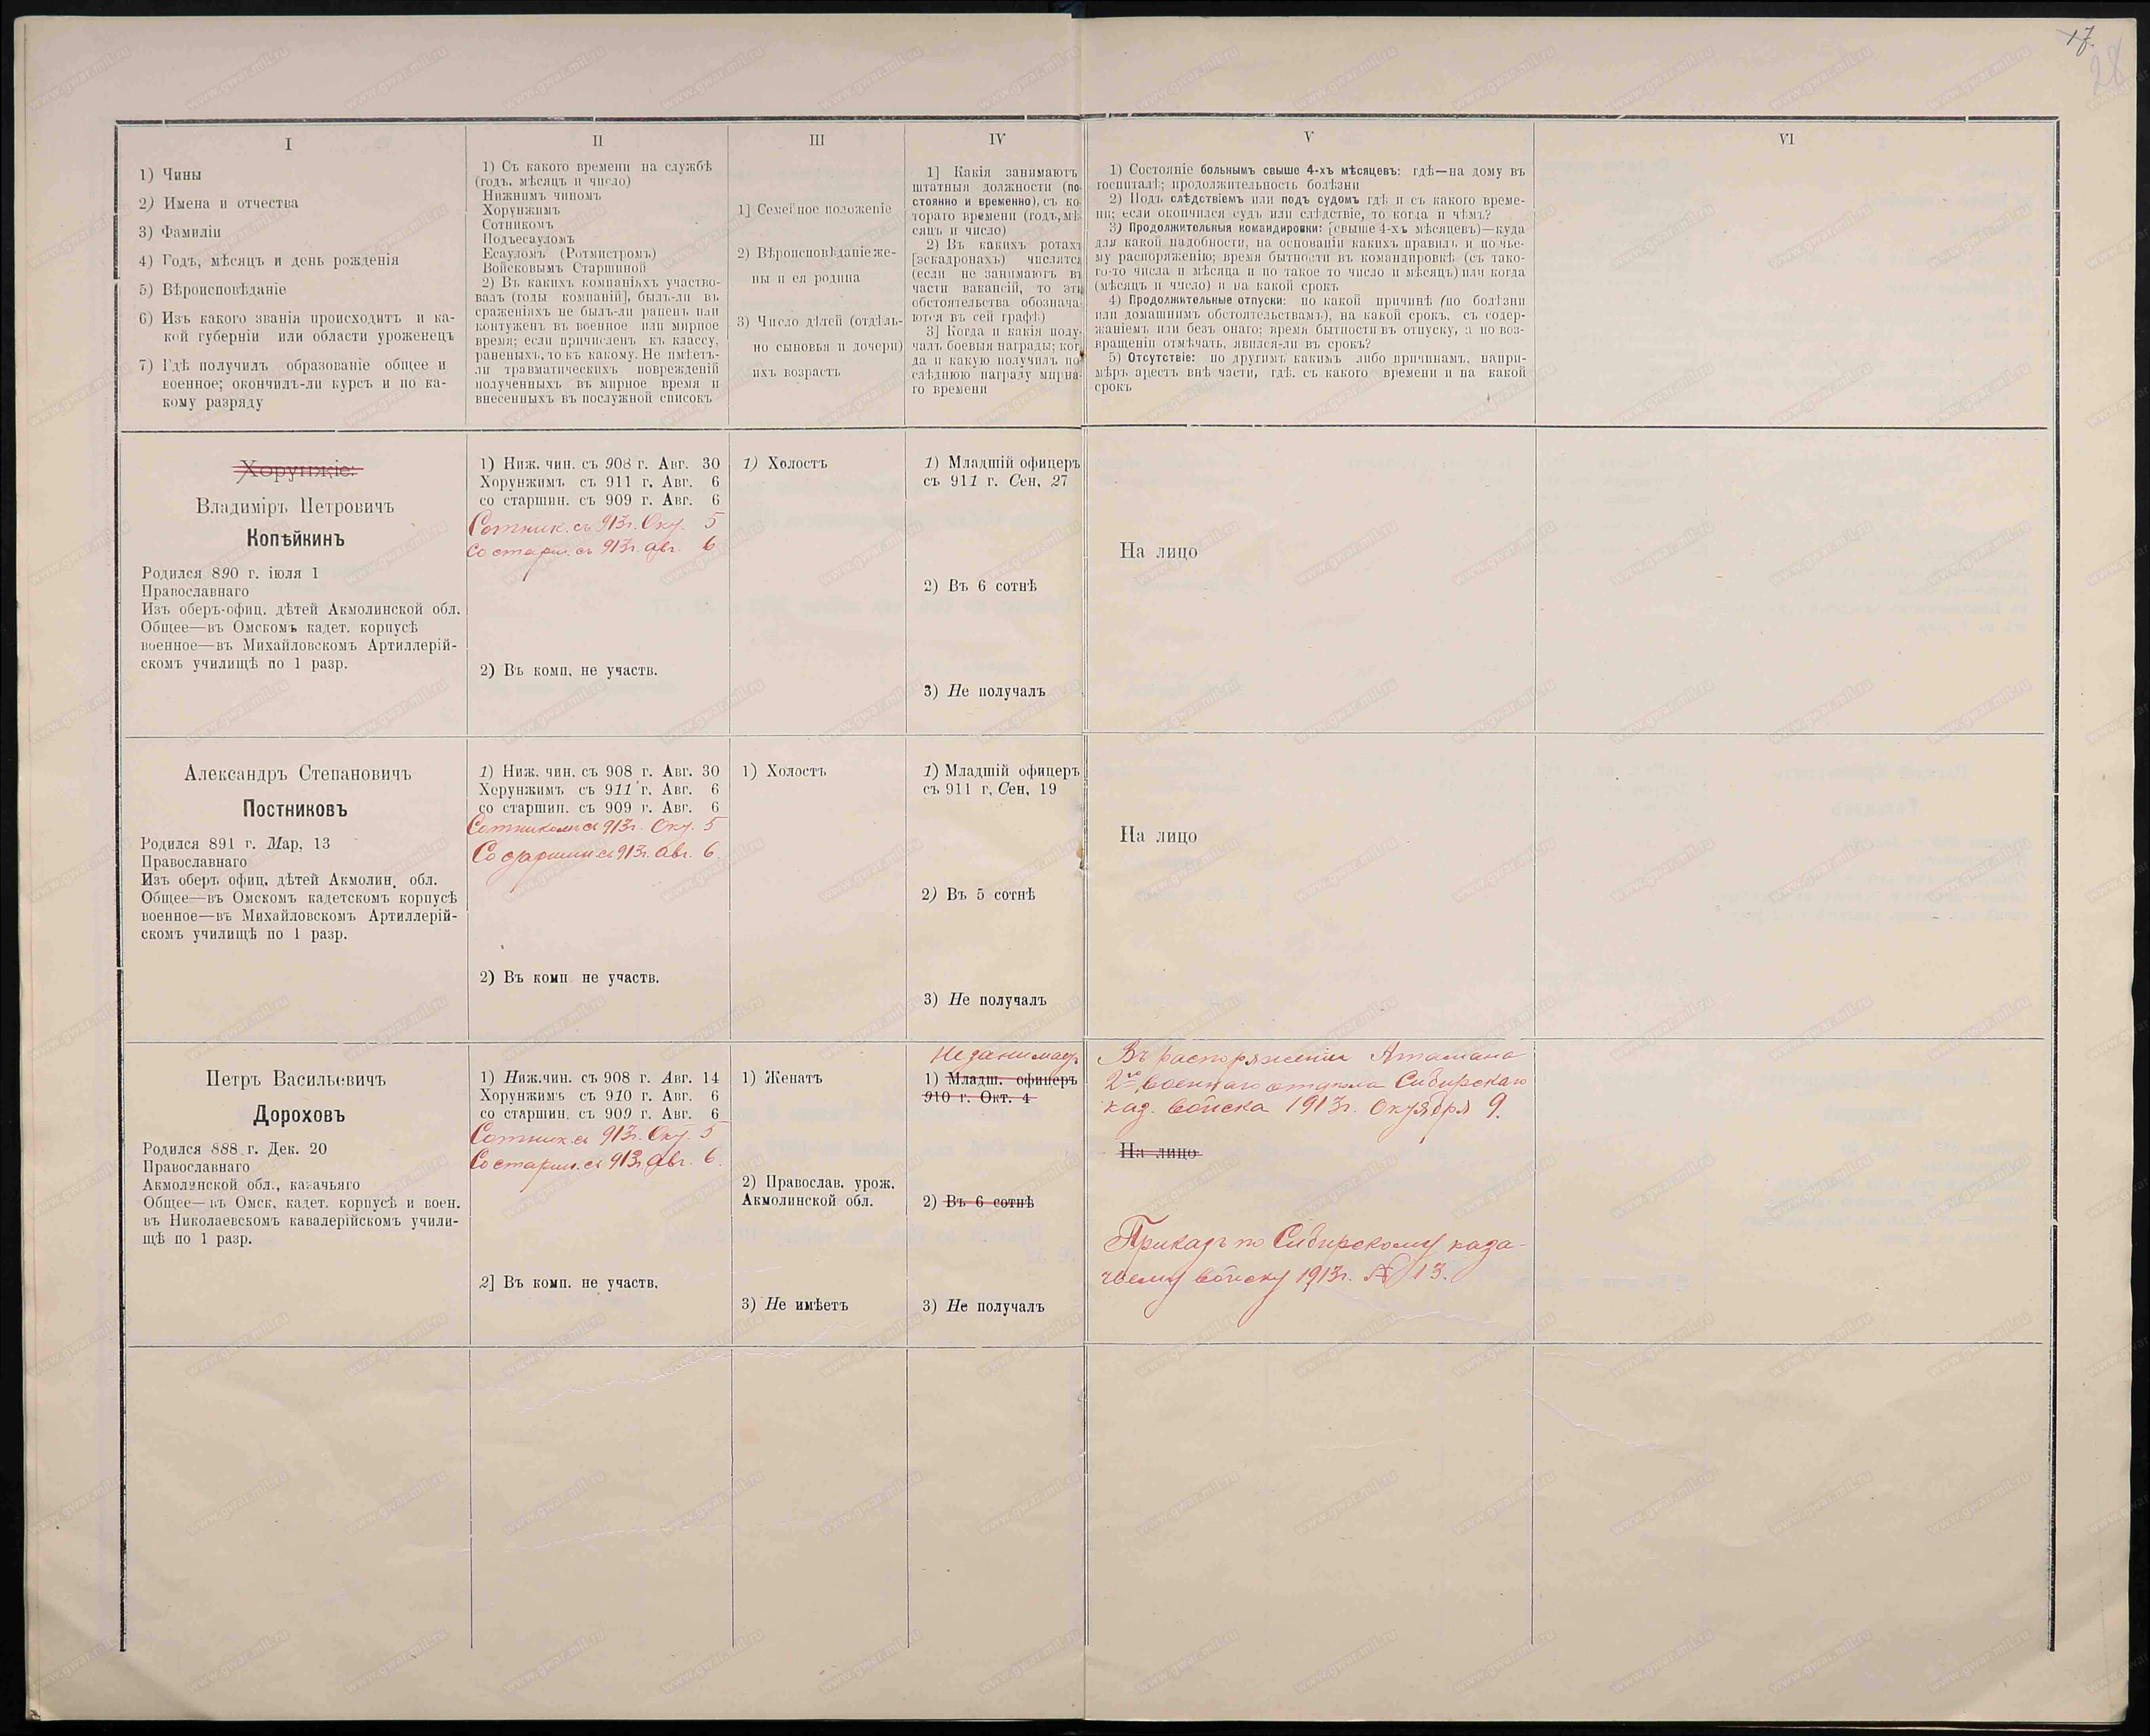 17.
28
I
1) Чины
2) Имена и отчества
3) Фамиліи
4) Годъ, мѣсяцъ и день рожденія
5) Вѣроисповѣданіе
6) Изъ какого званія происходитъ и ка-
кой губерніи или области уроженецъ
7) Гдѣ получилъ образованіе общее и
военное; окончилъ-ли курсъ и по ка-
кому разряду
II
1) Съ какого времени на службѣ
(годъ, мѣсяцъ и число)
Нижнимъ чиномъ
Хорунжимъ
Сотникомъ
Подъесауломъ
Есауломъ (Ротмистромъ)
Войсковымъ Старшиной
2) Въ какихъ компаніяхъ участво-
валъ (годы компаній], былъ-ли въ
сраженіяхъ не былъ-ли раненъ или
контуженъ въ военное или мирное
время; если причисленъ къ классу,
раненыхъ, то къ какому. Не имѣетъ-
ли травматическихъ поврежденій
полученныхъ въ мирное время и
внесенныхъ въ послужной списокъ
III
1] Семейное положеніе
2) Вѣроисповѣданіе же-
ны и ея родина
3) Число дѣтей (отдѣль-
но сыновья и дочери)
ихъ возрастъ
IV
1] Какія занимаютъ
штатныя должности (по-
стоянно и временно), съ ко-
тораго времени (годъ, мѣ-
сяцъ и число)
2) Въ какихъ ротахъ
[эскадронахъ) числятся
(если не занимаютъ въ
части вакансій, то эти
обстоятельства обознача-
ются въ сей графѣ)
3] Когда и какія полу-
чалъ боевыя награды; ког-
да и какую получилъ по-
слѣднюю награду мирна-
го времени
V
1) Состояніе больнымъ свыше 4-хъ мѣсяцевъ: гдѣ—на дому въ
госпиталѣ; продолжительность болѣзни
2) Подъ слѣдствіемъ или подъ судомъ гдѣ и съ какого време-
ни; если окончился судъ или слѣдствіе, то когда и чѣмъ?
3) Продолжительныя командировки: [свыше 4-хъ мѣсяцевъ)—куда
для какой надобности, на основаніи какихъ правилъ и по чье-
му распоряженію; время бытности въ командировкѣ (съ тако-
го-то числа и мѣсяца и по такое то число и мѣсяцъ) или когда
(мѣсяцъ и число) и на какой срокъ
4) Продолжительные отпуски: по какой причинѣ (по болѣзни
или домашнимъ обстоятельствамъ), на какой срокъ, съ содер-
жаніемъ или безъ онаго; время бытности въ отпуску, а по воз-
вращеніи отмѣчать, явился-ли въ срокъ?
5) Отсутствіе: по другимъ какимъ либо причинамъ, напри-
мѣръ арестъ внѣ части, гдѣ, съ какого времени и на какой
срокъ
VI
Хорунжіе:
Владиміръ Петровичъ
Копѣйкинъ
Родился 890 г. іюля 1
Православнаго
Изъ оберъ-офиц. дѣтей Акмолинской обл.
Общее—въ Омскомъ кадет. корпусѣ
военное—въ Михайловскомъ Артиллерій-
скомъ училищѣ по 1 разр.
1) Ниж. чин. съ 908 г. Авг. 30
Хорунжимъ съ 911 г. Авг. 6
со старшин. съ 909 г. Авг. 6
Сотник. съ 913г. Окт. 5
Со старш. съ 913г. авг. 6
2) Въ комп. не участв.
1) Холостъ
1) Младшій офицеръ
съ 911 г. Сен. 27
2) Въ 6 сотнѣ
3) Не получалъ
На лицо
Александръ Степановичъ
Постниковъ
Родился 891 г. Мар. 13
Православнаго
Изъ оберъ офиц. дѣтей Акмолин. обл.
Общее—въ Омскомъ кадетскомъ корпусѣ
военное—въ Михайловскомъ Артиллерій-
скомъ училищѣ по 1 разр.
1) Ниж. чин. съ 908 г. Авг. 30
Хорунжимъ съ 911 г. Авг. 6
со старшин. съ 909 г. Авг. 6
Сотникомъ съ 913г. Окт. 5
Со старшин съ 913г. авг. 6.
2) Въ комп не участв.
1) Холостъ
1) Младшій офицеръ
съ 911 г. Сен. 19
2) Въ 5 сотнѣ
3) Не получалъ
На лицо
Петръ Васильевичъ
Дороховъ
Родился 888 г. Дек. 20
Православнаго
Акмолинской обл., казачьяго
Общее—въ Омск. кадет. корпусѣ и воен.
въ Николаевскомъ кавалерійскомъ учили-
щѣ по 1 разр.
1) Ниж.чин. съ 908 г. Авг. 14
Хорунжимъ съ 910 г. Авг. 6
со старшин. съ 909 г. Авг. 6
Сотник. съ 913г. Окт. 5
Со старш. съ 913г. авг. 6.
2] Въ комп. не участв.
1) Женатъ
2) Православ. урож.
Акмолинской обл.
3) Не имѣетъ
Не занимаетъ
1) Младш. офицеръ
910 г. Окт. 4
2) Въ 6 сотнѣ
3) Не получалъ
Въ распоряженіи Атамана
2го военнаго отдѣла Сибирскаго
каз. войска 1913г. Октября 9.
На лицо
Приказъ по Сибирскому каза-
чьему войску 1913г. № 13.